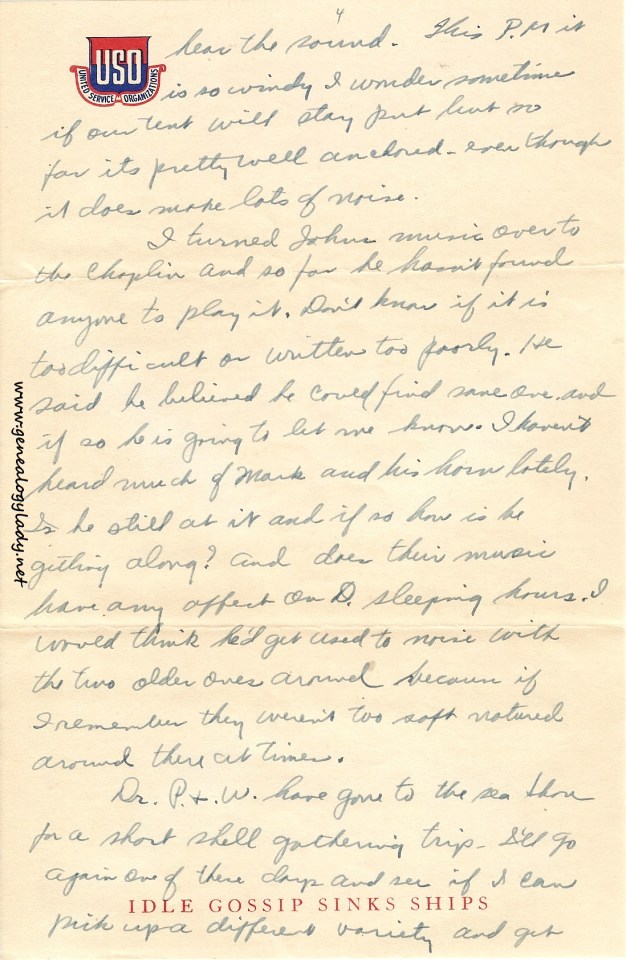 4
USO
UNITED SERVICE ORGANIZATIONS
hear the sound. This P.M it
is so windy I wonder sometime
if our tent will stay put but so
far its pretty well anchored - even though
it does make lots of noise.
I turned Johns music over to
the Chaplin and so far he hasn't found
anyone to play it. Don't know if it is
too difficult or written too poorly. He
said he believed he could find some one and
if so he is going to let me know. I haven't
heard much of Mark and his horn lately.
Is he still at it and if so how is he
getting along? And does their music
have any affect on D. sleeping hours. I
would think he'd get used to noise with
the two older ones around because if
I remember they weren't too soft natured
around there at times.
Dr. P. & W. have gone to the sea shore
for a short shell gathering trip. I'll go
again one of these days and see if I can
IDLE GOSSIP SINKS SHIPS
pick up a different variety and get
www.genealogylady.net